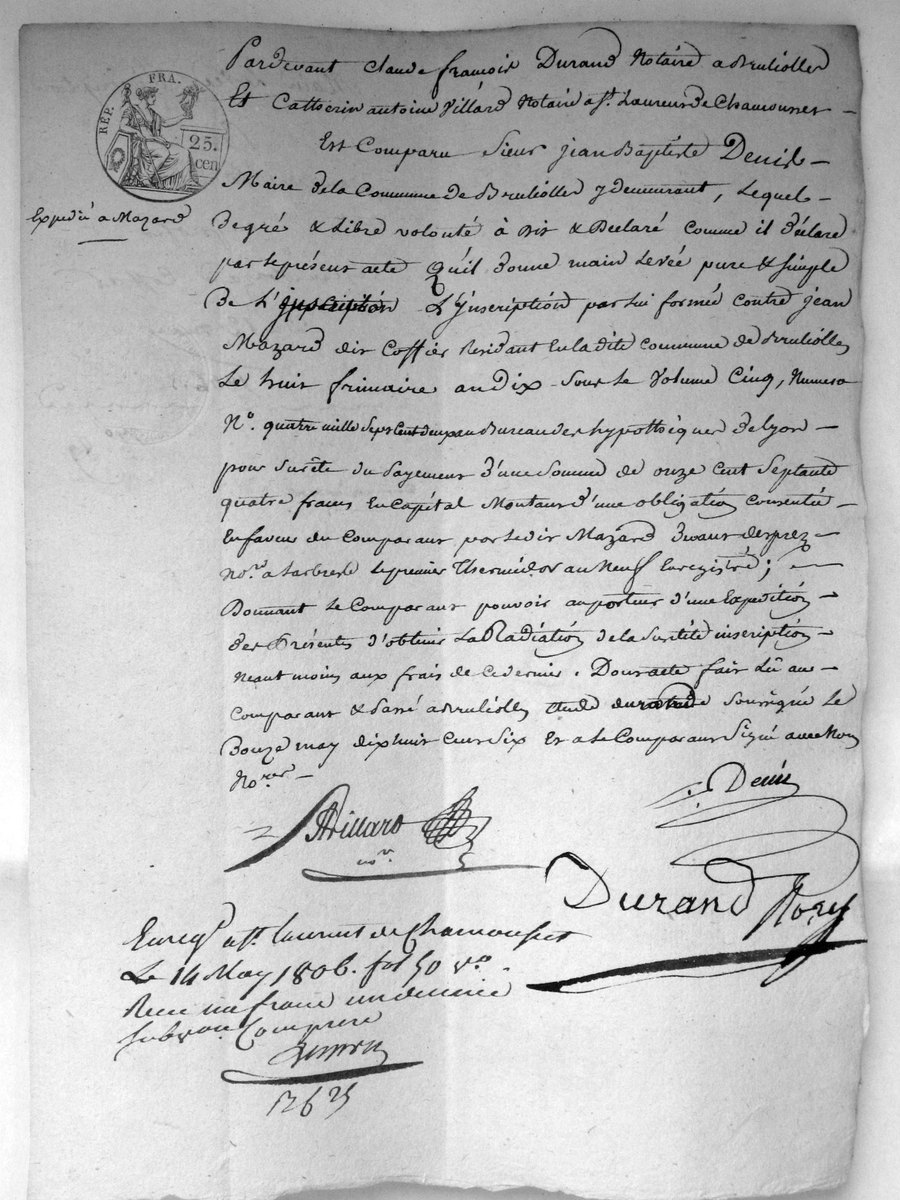 RÉP. FRA.
25. cen
Expedié a Mazard
Pardevant Claude françois Durand Notaire a Brulioller
Et Cattherin antoine Villard Notaire a St. Laurent de Chamousset
Est Comparu Sieur jean Baptiste Denis
Maire de la Commune de Bruliolles y demeurant, Lequel
de gré & Libre volonté à dit & Déclaré comme il déclare
par le présent acte qu'il donne main Levée pure & simple
de L'Inscription L'Inscription par lui formée contre jean
Mazard dit Coffier Residant En la dite commune de Bruliolles
Le huit frimaire an dix sous le Volume Cinq, Numero
No. quatre mille sept cent deux au Bureau des hypotheques de Lyon
pour sureté du payement d'une somme de onze cent septante
quatre francs En capital Montant d'une obligation consentie
En faveur du Comparant par ledit Mazard devant desprez
No.re a Larbresle le premier Thermidor an Neuf Enregistré;
Donnant le Comparant pouvoir au porteur d'une Expedition
des Présentes d'obtenir La Radiation de la susdite inscription
Neant moins aux frais de ce dernier. Dont acte fait Lû au
Comparant & Passé a Bruliolles Etude durand soussigné le
Douze may dix huit cent six Et a le Comparant signé avec Nous
No.res
Denis
Villard
no.re
Durand No.re
Enreg.é a St. Laurent de Chamousset
Le 14 May 1806. fol 50 v.o
Recu un franc un decime
Subvon. Comprise